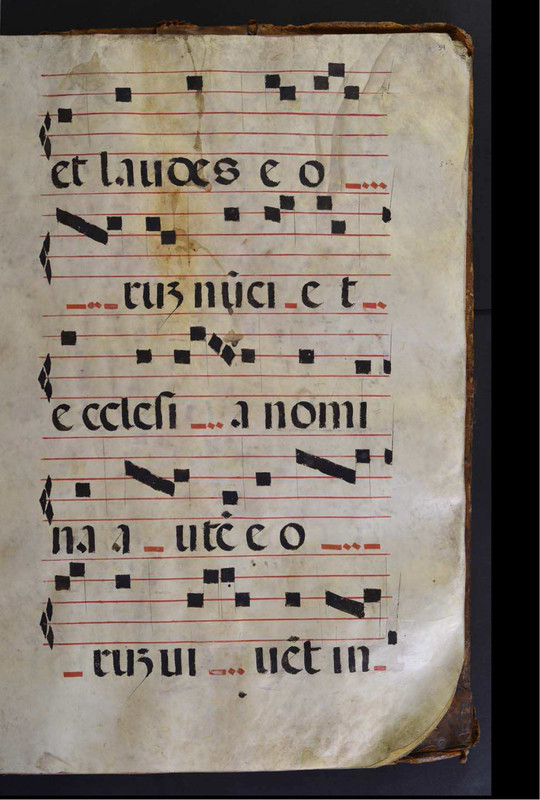 et laudes e o
ruꝫ nũci e t
e cclesi a nomi
na a utẽ e o
ruꝫ ui uẽt in